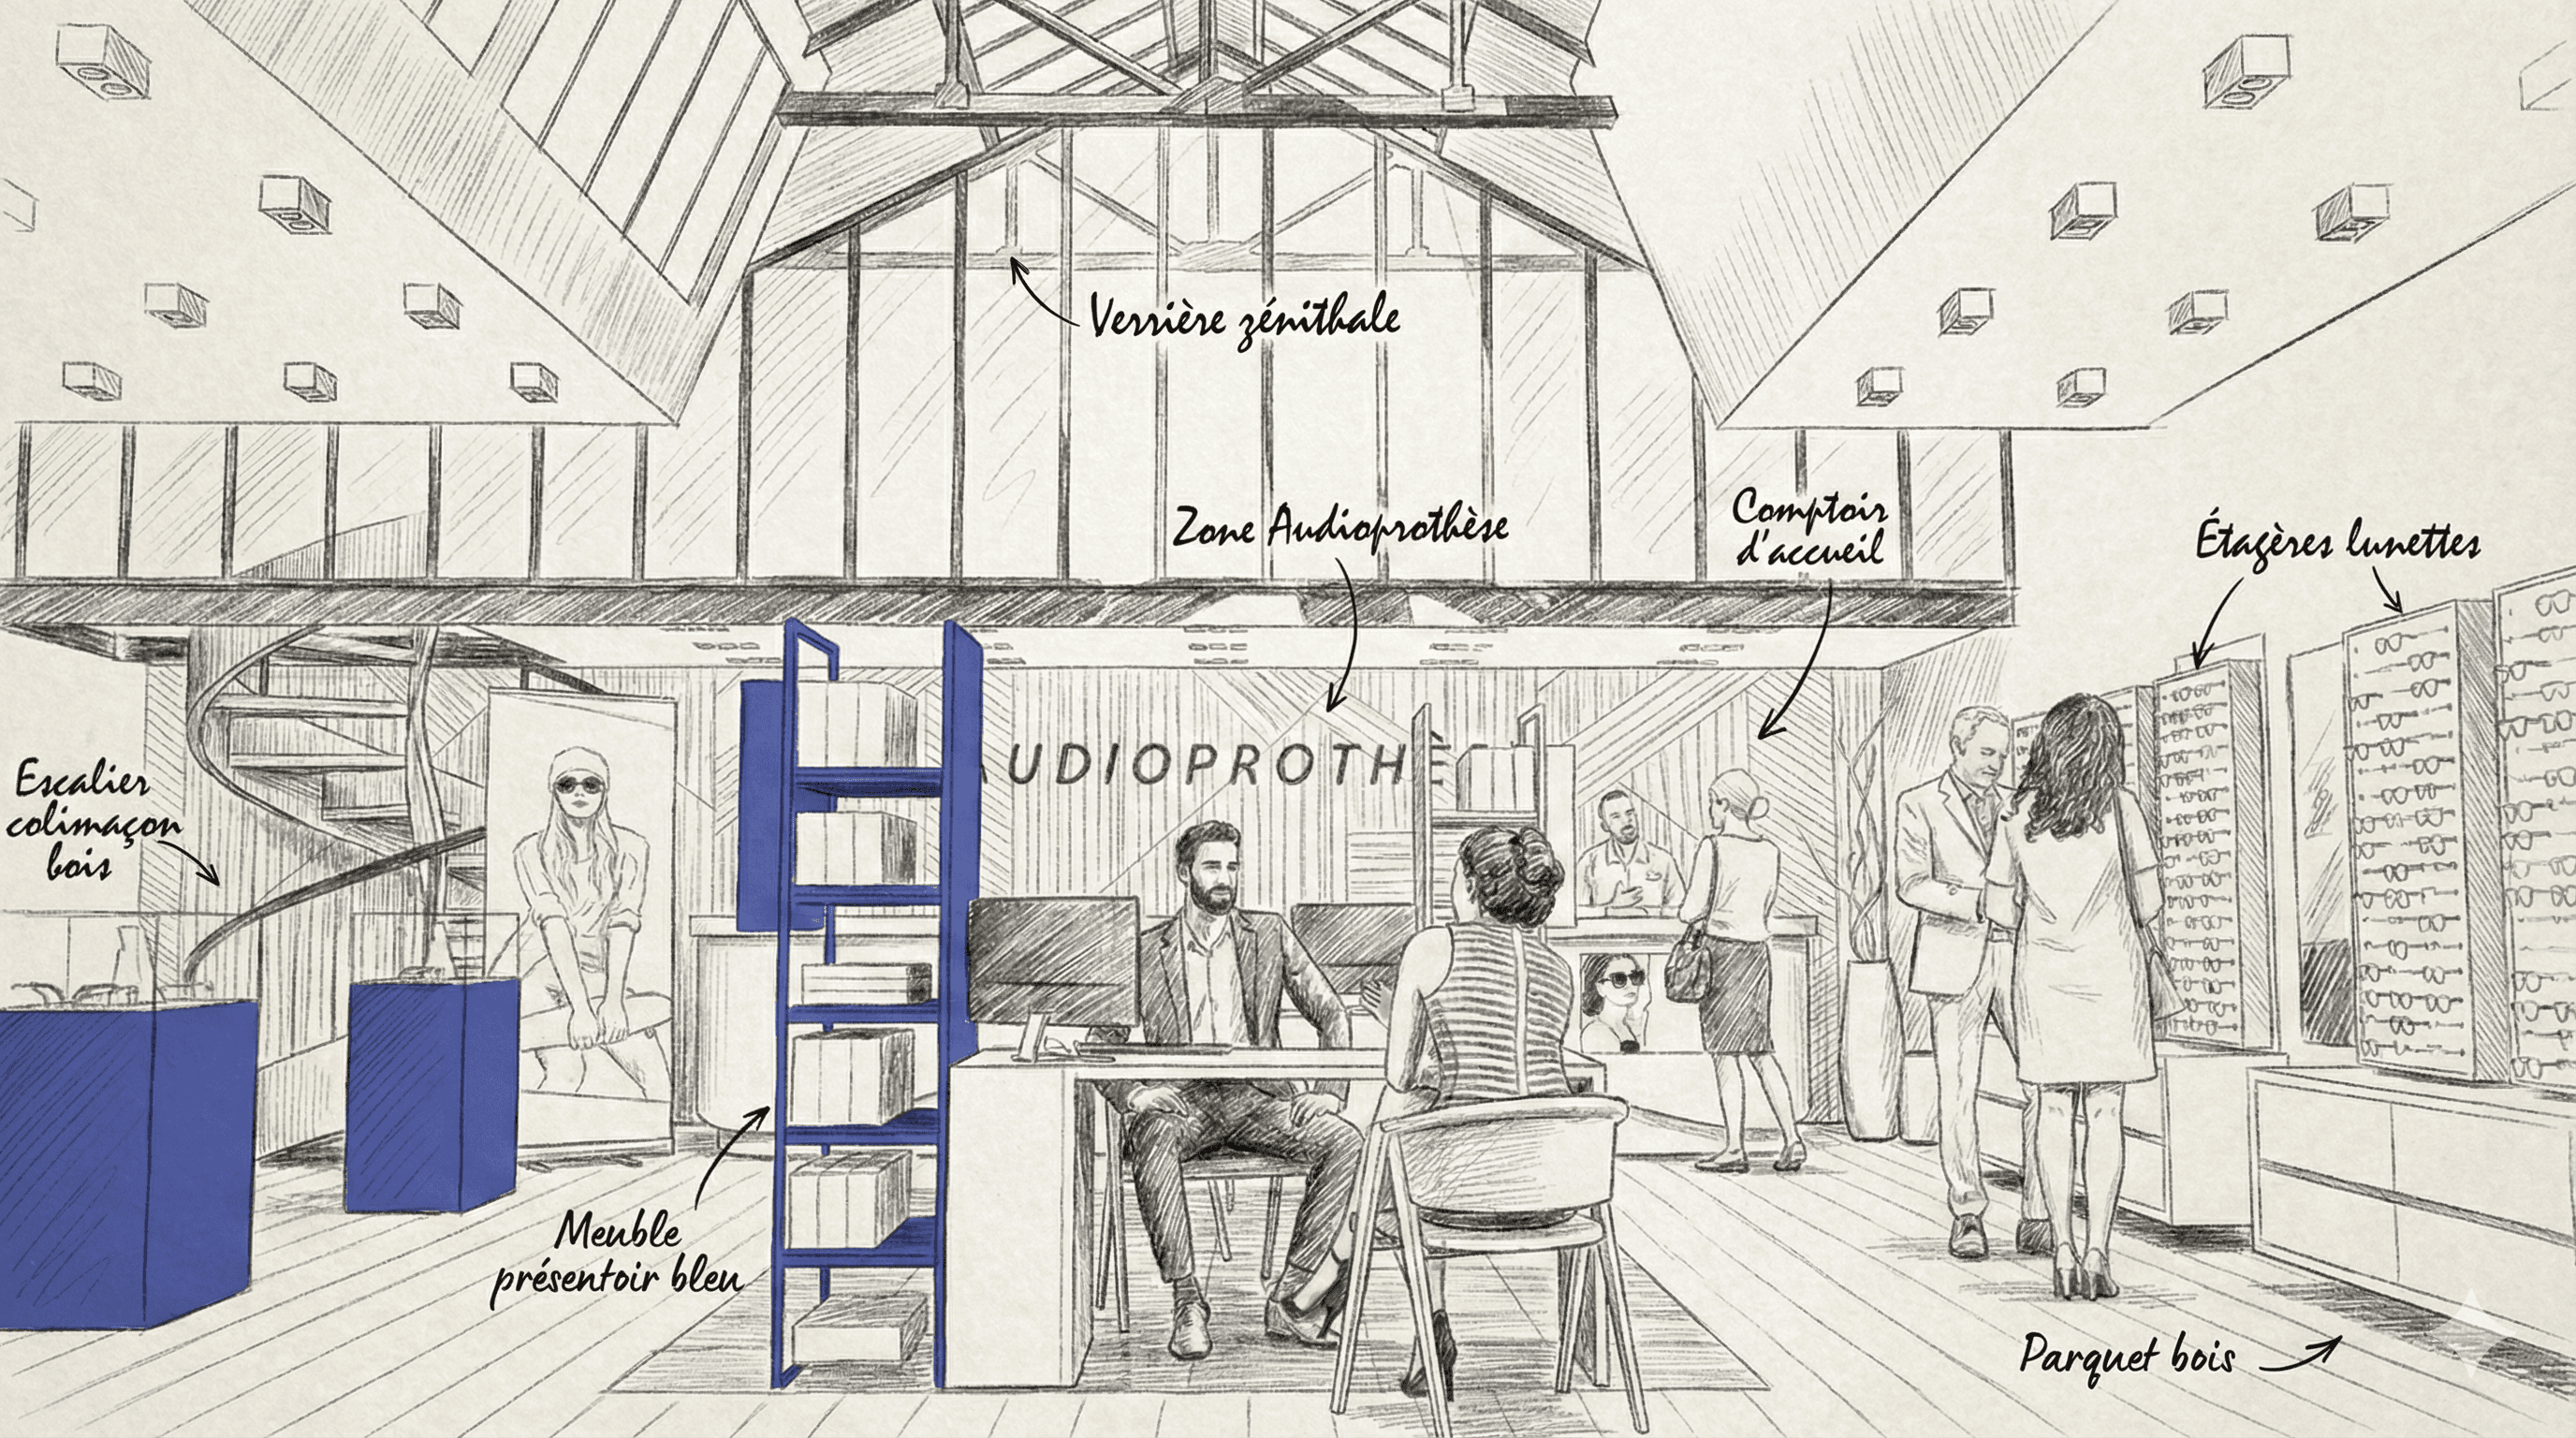 Verrière zénithale
Zone Audioprothèse
Comptoir
d'accueil
Étagères lunettes
UDIOPROTHÈ
Escalier
colimaçon
bois
Meuble
présentoir bleu
Parquet bois